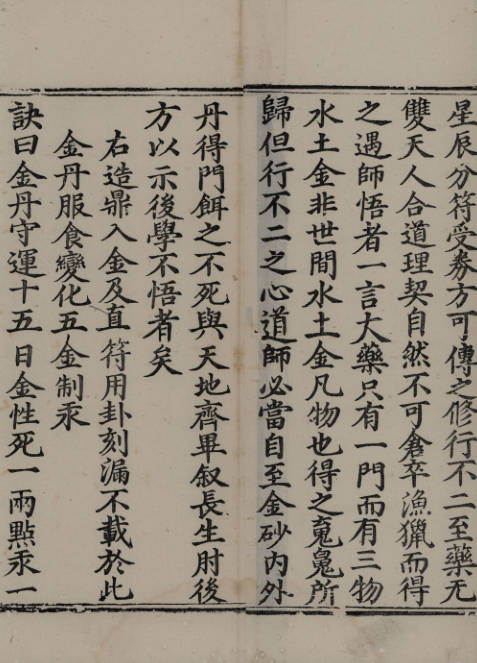 星辰分符受券方可傳之修行不二至藥无
雙天人合道理契自然不可倉卒漁獵而得
之遇師悟者一言大藥只有一門而有三物
水土金非世間水土金凡物也得之䰟鬼所
歸但行不二之心道師必當自至金砂內外
丹得門餌之不死與天地齊畢叙長生肘後
方以示後學不悟者矣
右造鼎入金及直符用卦刻漏不載於此
金丹服食變化五金制汞
訣曰金丹守運十五日金性死一兩點汞一